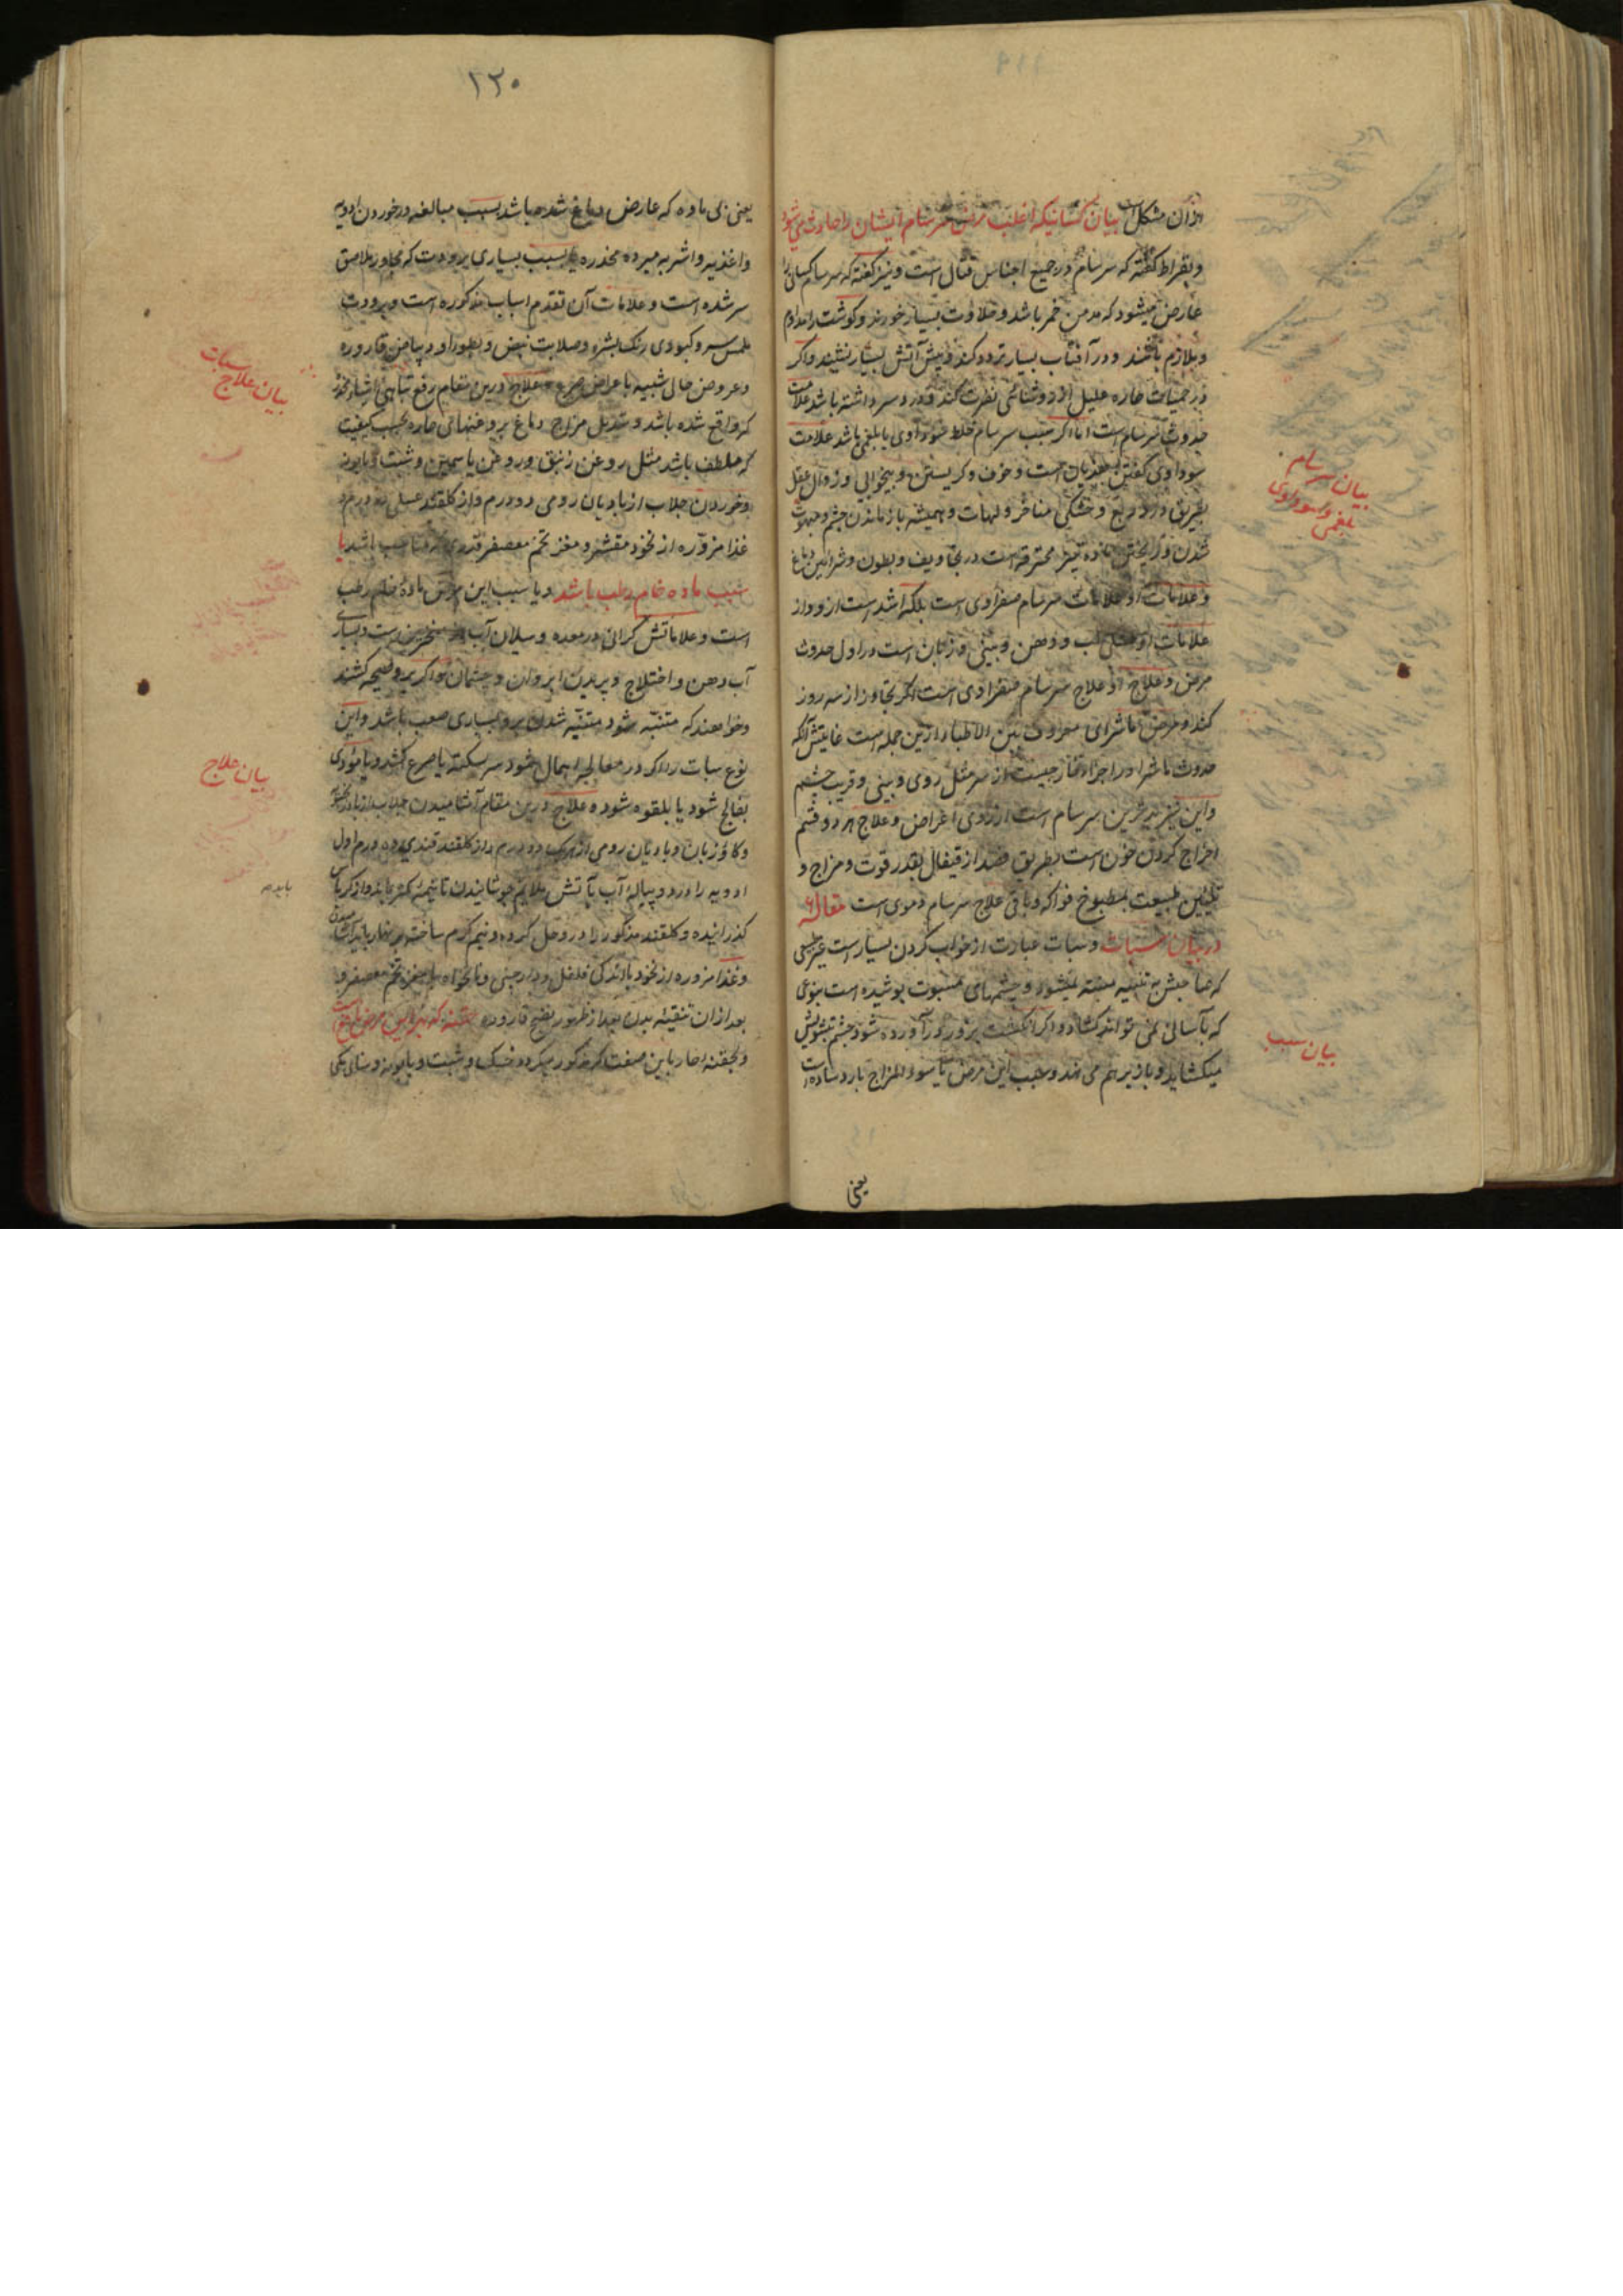 ازان مشکل است بیان کسانیکه اغلب مرض سرسام ایشان را حادث می شود
وبقراط گفته که سرسام در جمیع اجناس قتال است ونیز گفته که سرسام کسانی را
عارض میشود که مدمن خمر باشد وحلاوت بسیار خورند وگوشت را مداوم
وملازم باشند ودر آفتاب بسیار تردد کنند وپیش آتش بسیار نشیند واگر
در حمیات حاره علیل از روشنائی نفرت کند ودرد سر داشته باشد علامت
حدوث سرسام است اما اگر سبب سرسام خلط سوداوی یا بلغمی باشد علامت
سوداوی گفتن هذیان است وخوف وگریستن وبیخوابی وزوال عقل
بطریق درد ربع وخشکی مناخر ولهات وهمیشه باز ماندن چشم ومبهوت
شدن وریختن ماده محترقه است در تجاویف وبطون وشرائین دماغ
وعلامات او علامات سرسام صفراوی است بلکه اشد است ازو واز
علامات او خشکی لب ودهن وبینی وزبان است در اول حدوث
مرض وعلاج او علاج سرسام صفراوی است اگر تجاوز از سه روز
کند ومرض ماشرای معروف بین الاطباء ازین جمله است غایتش آنکه
حدوث ماشرا در اجزاء خارجیست از سر مثل روی وبینی وقریب چشم
واین نیز بدترین سرسام است از روی اعراض وعلاج هر دو قسم
اخراج کردن خون است بطریق فصد از قیفال بقدر قوت ومزاج و
تلیین طبیعت بمطبوخ فواکه وباقی علاج سرسام دموی است مقاله ۶
در بیان سبات وسبات عبارت از خواب کردن بسیار است غیر طبیعی
که صاحبش به تنبیه متنبه نمیشود وچشمهای مسبوت پوشیده است بنوعی
که بآسانی نمی تواند کشاد واگر انگشت بزور در آورده شود چشم بتشویش
میکشاید وباز برهم می نهد وسبب این مرض یا سوء المزاج بارد ساده است
یعنی
بیان سرسام
بلغمی وسوداوی
بیان سبب
۱۲۰
یعنی بی ماده که عارض دماغ شده باشد بسبب مبالغه در خوردن ادویه
واغذیه واشربه مبرده مخدره یا بسبب بسیاری برودت که مجاور ملاصق
سر شده است وعلامات آن تقدم اسباب مذکوره است وبرودت
ملمس سر وکبودی رنگ بشره وصلابت نبض وبطور او وبیاض قاروره
وعروض حال شبیه باعراض صرع وعلاج درین مقام رفع تباهی اشیاء مخدر
که واقع شده باشد وتبدیل مزاج دماغ بروغنهای حاره بحسب کیفیت
که ملطف باشد مثل روغن زنبق وروغن یاسمین وشبت وبابونه
وخوردن جلاب از بادیان رومی دو درم واز گلقند عسلی ده درم
غذا مزوره از نخود مقشر ومغز تخم معصفر قدری مناسب باشد یا
سبب ماده خام رطب باشد ویا سبب این مرض ماده خام رطب
است وعلاماتش گرانی در معده وسیلان آب از منخرین است وبسیاری
آب دهن واختلاج وپریدن ابروان وچشمان واگر برو صیحه کشند
وخواهند که متنبه شود متنبه شدن برو بسیاری صعب باشد واین
نوع سبات را اگر در معالجه اهمال شود سر بسکته یا صرع کشد ویا مؤدی
بفالج شود یا بلقوه شود وعلاج درین مقام آشامیدن جلاب از بادرنجبویه
وگاو زبان وبادیان رومی از هریک دو درم واز گلقند قندی ده درم اول
ادویه را در دو پیاله آب بآتش ملایم جوشانیدن تا نیمه کم بماند واز کرباس
گذرانیده وگلقند مذکور را درو حل کرده ونیم گرم ساخته بر نهار باید آشامیدن
وغذا مزوره از نخود با اندکی فلفل ودارچینی ونانخواه یا مغز تخم معصفر و
بعد ازان تنقیه بدن بعد از ظهور نضج قاروره حقنه که برای این مرض نافع است
وبحقنه حار باین صفت که مذکور میگردد خسک وشبت وبابونه وسنای مکی
بیان علاج سبات
بیان علاج